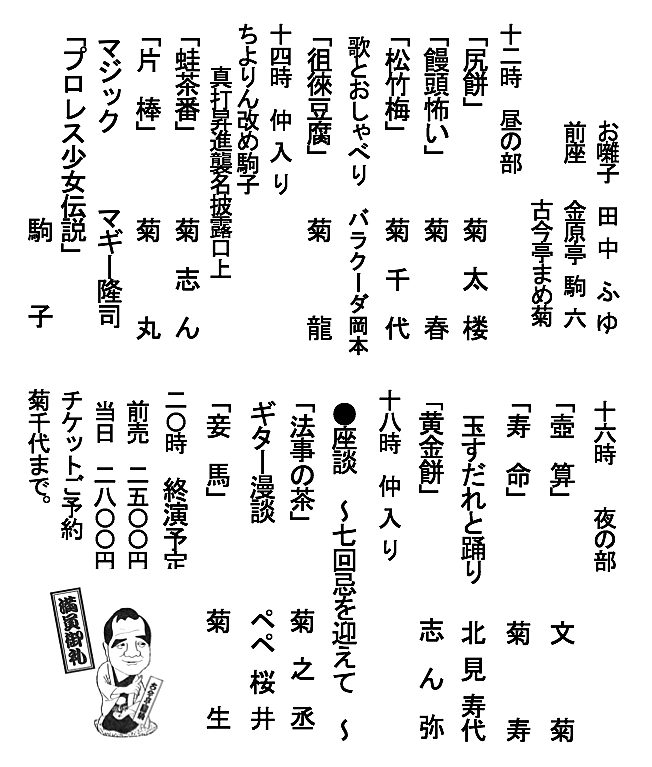 お囃子 田中 ふゆ
前座 金原亭 駒六
古今亭まめ菊
十二時 昼の部
「尻餅」 菊太楼
「饅頭怖い」 菊春
「松竹梅」 菊千代
歌とおしゃべり バラクーダ岡本
「徂徠豆腐」 菊龍
十四時 仲入り
ちよりん改め駒子
真打昇進襲名披露口上
「蛙茶番」 菊志ん
「片棒」 菊丸
マジック マギー隆司
「プロレス少女伝説」
駒子
十六時 夜の部
「壺算」 文菊
「寿命」 菊寿
玉すだれと踊り 北見寿代
「黄金餅」 志ん弥
十八時 仲入り
●座談 ～七回忌を迎えて～
「法事の茶」 菊之丞
ギター漫談 ペペ桜井
「妾馬」 菊生
二〇時 終演予定
前売 二五〇〇円
当日 二八〇〇円
チケットご予約
菊千代まで。
満員御礼